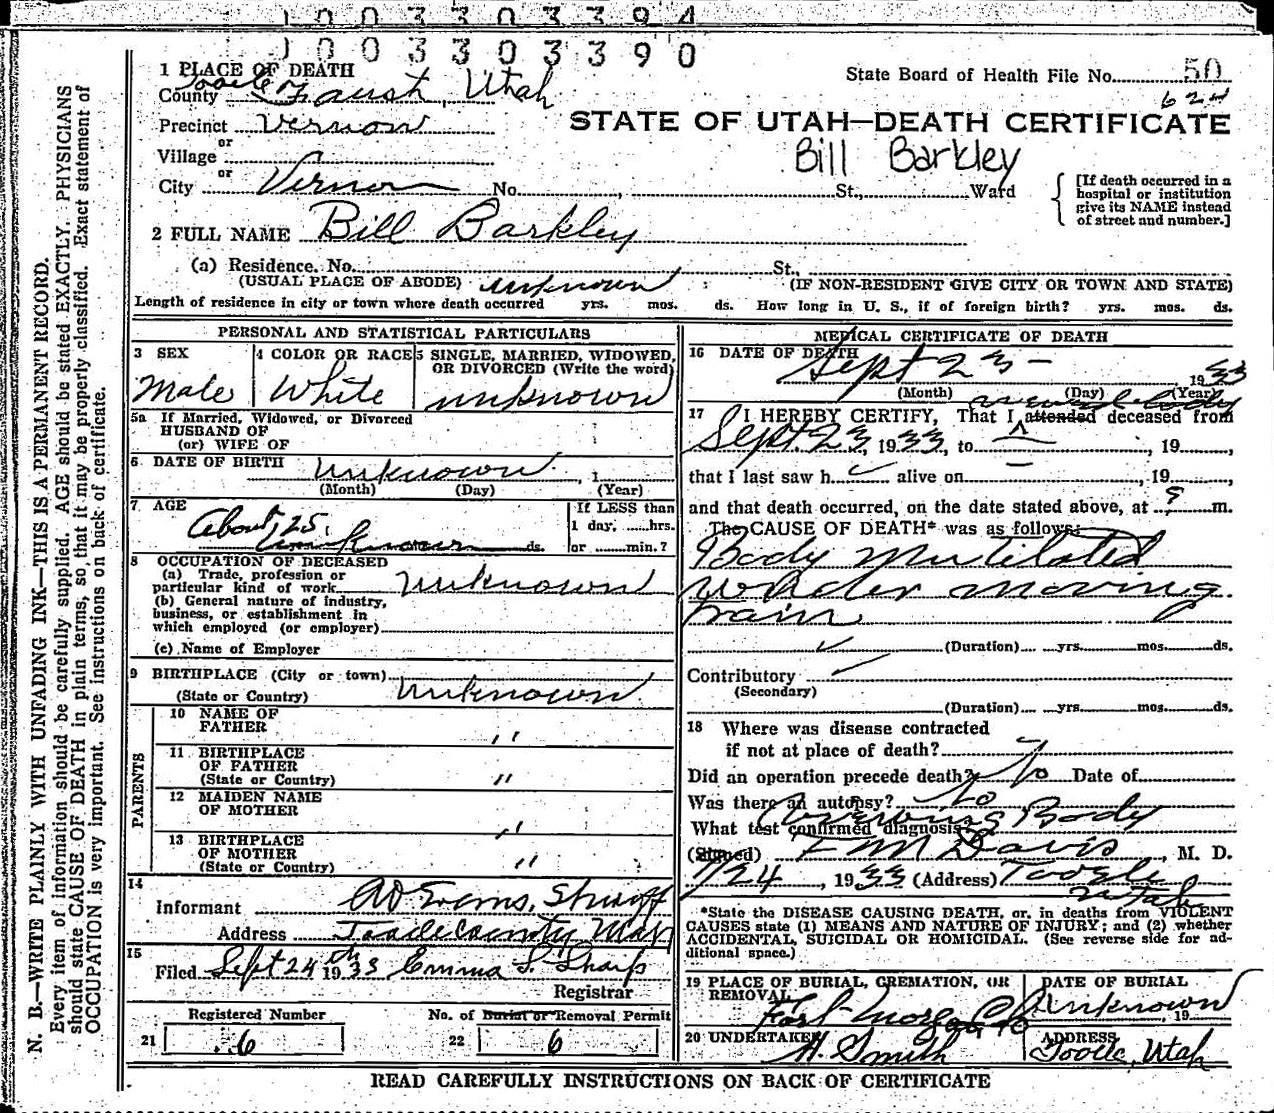 1003303394
1003303390
1 PLACE OF DEATH
State Board of Health File No. 50
624
County Tooele Faust, Utah
Precinct Vernon
STATE OF UTAH—DEATH CERTIFICATE
or
Village
Bill Barkley
or
City Vernon No. , St., Ward
[If death occurred in a hospital or institution give its NAME instead of street and number.]
2 FULL NAME Bill Barkley
(a) Residence. No. St.,
(USUAL PLACE OF ABODE) unknown (IF NON-RESIDENT GIVE CITY OR TOWN AND STATE)
Length of residence in city or town where death occurred yrs. mos. ds. How long in U. S., if of foreign birth? yrs. mos. ds.
PERSONAL AND STATISTICAL PARTICULARS
3 SEX Male
4 COLOR OR RACE White
5 SINGLE, MARRIED, WIDOWED, OR DIVORCED (Write the word) unknown
5a If Married, Widowed, or Divorced
HUSBAND OF
(or) WIFE OF
6 DATE OF BIRTH unknown, 1
(Month) (Day) (Year)
7 AGE About 25. unknown ds.
If LESS than
1 day, hrs.
or min.?
8 OCCUPATION OF DECEASED
(a) Trade, profession or
particular kind of work unknown
(b) General nature of industry,
business, or establishment in
which employed (or employer)
(c) Name of Employer
9 BIRTHPLACE (City or town)
(State or Country) unknown
PARENTS
10 NAME OF
FATHER "
11 BIRTHPLACE
OF FATHER
(State or Country) "
12 MAIDEN NAME
OF MOTHER "
13 BIRTHPLACE
OF MOTHER
(State or Country) "
14
Informant Evans, Sheriff
Address Tooele County Utah
15
Filed Sept 24th 1933 Emma S. Sharp
Registrar
Registered Number
21 6
No. of Burial or Removal Permit
22 6
MEDICAL CERTIFICATE OF DEATH
16 DATE OF DEATH
Sept 23 - 1933
(Month) (Day) (Year)
17 I HEREBY CERTIFY, That I attended viewed body deceased from
Sept. 23, 1933, to — , 19 ,
that I last saw h alive on — , 19 ,
and that death occurred, on the date stated above, at ? m.
The CAUSE OF DEATH* was as follows:
Body Mutilated
under moving
train
(Duration) yrs. mos. ds.
Contributory
(Secondary)
(Duration) yrs. mos. ds.
18 Where was disease contracted
if not at place of death?
Did an operation precede death? No Date of
Was there an autopsy? No
What test confirmed diagnosis? Viewing Body
(Signed) F M Davis, M. D.
9/24, 1933 (Address) Tooele
Utah
*State the DISEASE CAUSING DEATH, or, in deaths from VIOLENT
CAUSES state (1) MEANS AND NATURE OF INJURY; and (2) whether
ACCIDENTAL, SUICIDAL OR HOMICIDAL. (See reverse side for ad-
ditional space.)
19 PLACE OF BURIAL, CREMATION, OR
REMOVAL
Fort Morgan Colo
DATE OF BURIAL
Unknown, 19
20 UNDERTAKER
H. Smith
ADDRESS
Tooele, Utah
READ CAREFULLY INSTRUCTIONS ON BACK OF CERTIFICATE
N. B.—WRITE PLAINLY WITH UNFADING INK—THIS IS A PERMANENT RECORD.
Every item of information should be carefully supplied. AGE should be stated EXACTLY. PHYSICIANS
should state CAUSE OF DEATH in plain terms, so that it may be properly classified. Exact statement of
OCCUPATION is very important. See instructions on back of certificate.